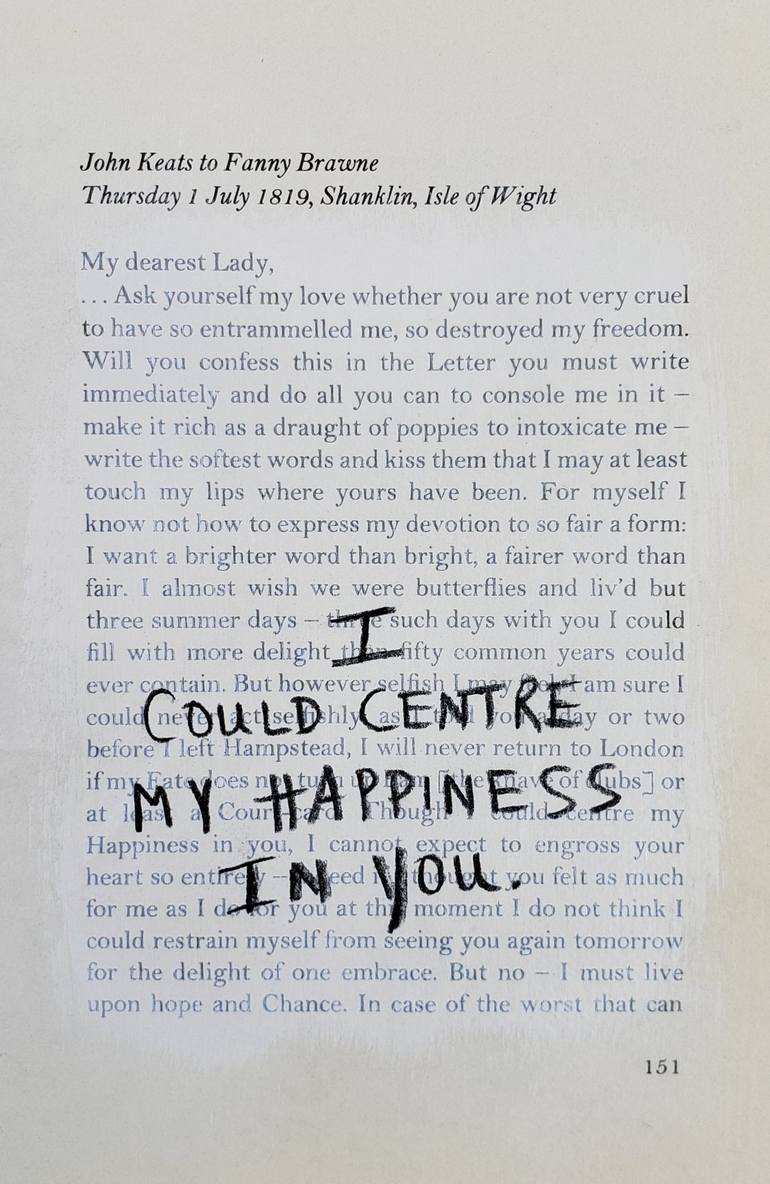 John Keats to Fanny Brawne
Thursday 1 July 1819, Shanklin, Isle of Wight
My dearest Lady,
... Ask yourself my love whether you are not very cruel
to have so entrammelled me, so destroyed my freedom.
Will you confess this in the Letter you must write
immediately and do all you can to console me in it –
make it rich as a draught of poppies to intoxicate me –
write the softest words and kiss them that I may at least
touch my lips where yours have been. For myself I
know not how to express my devotion to so fair a form:
I want a brighter word than bright, a fairer word than
fair. I almost wish we were butterflies and liv'd but
three summer days – three such days with you I could
fill with more delight than fifty common years could
ever contain. But however selfish I may am sure I
could never act selfishly: as told you a day or two
before I left Hampstead, I will never return to London
if my Fate does not turn up Pam [the knave of clubs] or
at least a Court card. Though I could centre my
Happiness in you, I cannot expect to engross your
heart so entirely – indeed if I thought you felt as much
for me as I do for you at this moment I do not think I
could restrain myself from seeing you again tomorrow
for the delight of one embrace. But no – I must live
upon hope and Chance. In case of the worst that can
I
COULD CENTRE
MY HAPPINESS
IN YOU.
151